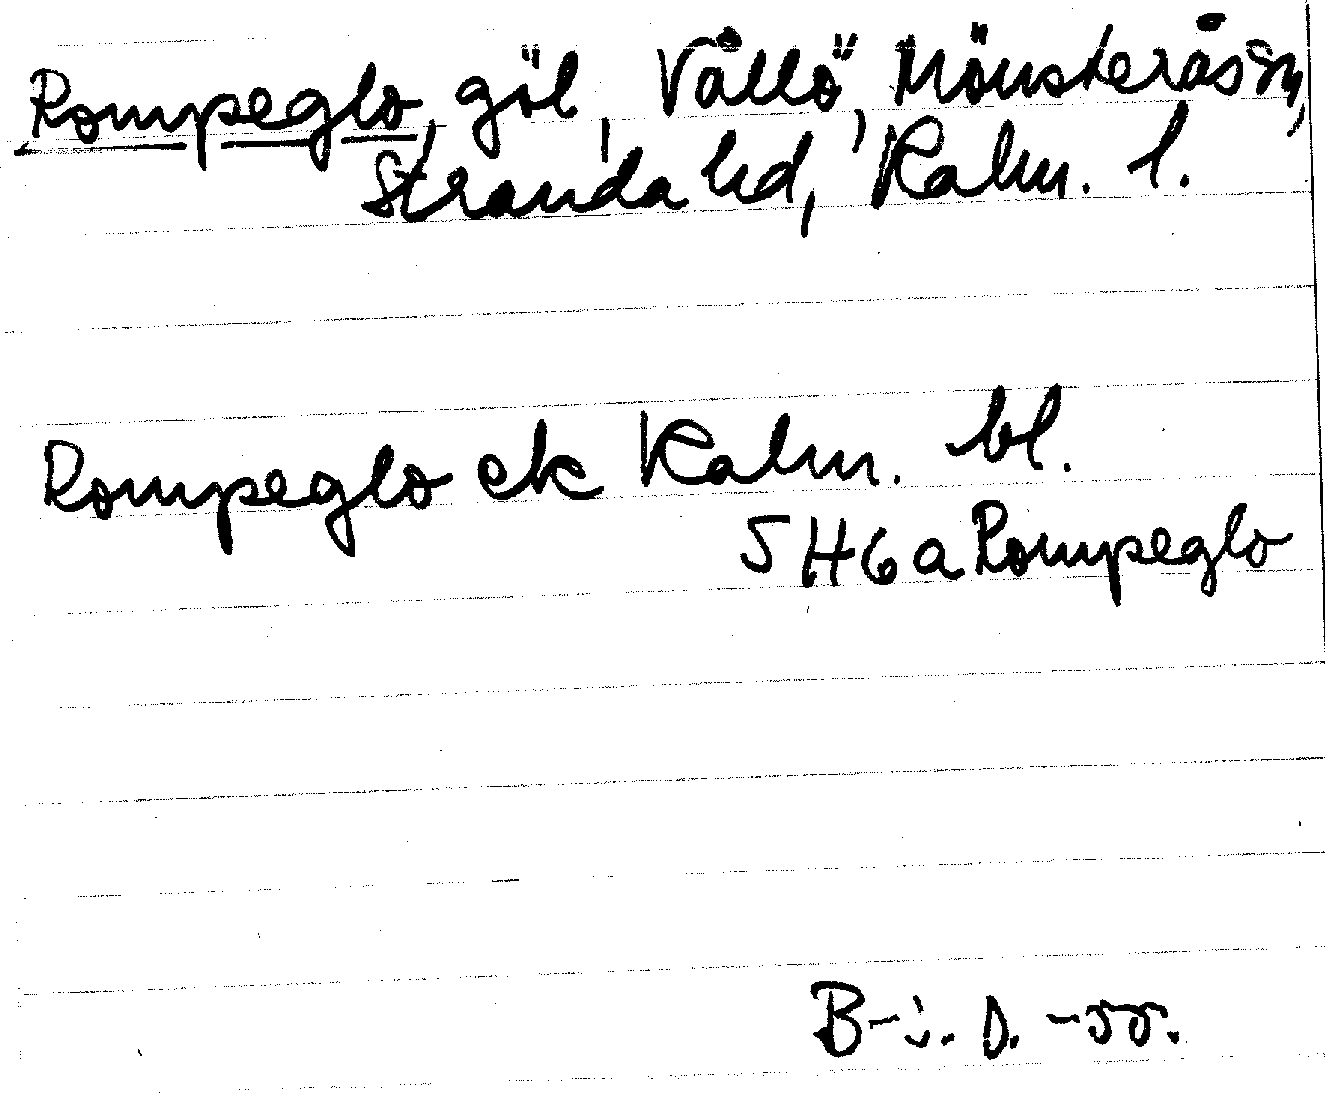 Rompeglo, göl, Vållö, Mönsterås sn,
Stranda hd, Kalm. l.
Rompeglo ek Kalm. bl.
5 H 6 a Rompeglo
B-i. D. -55.